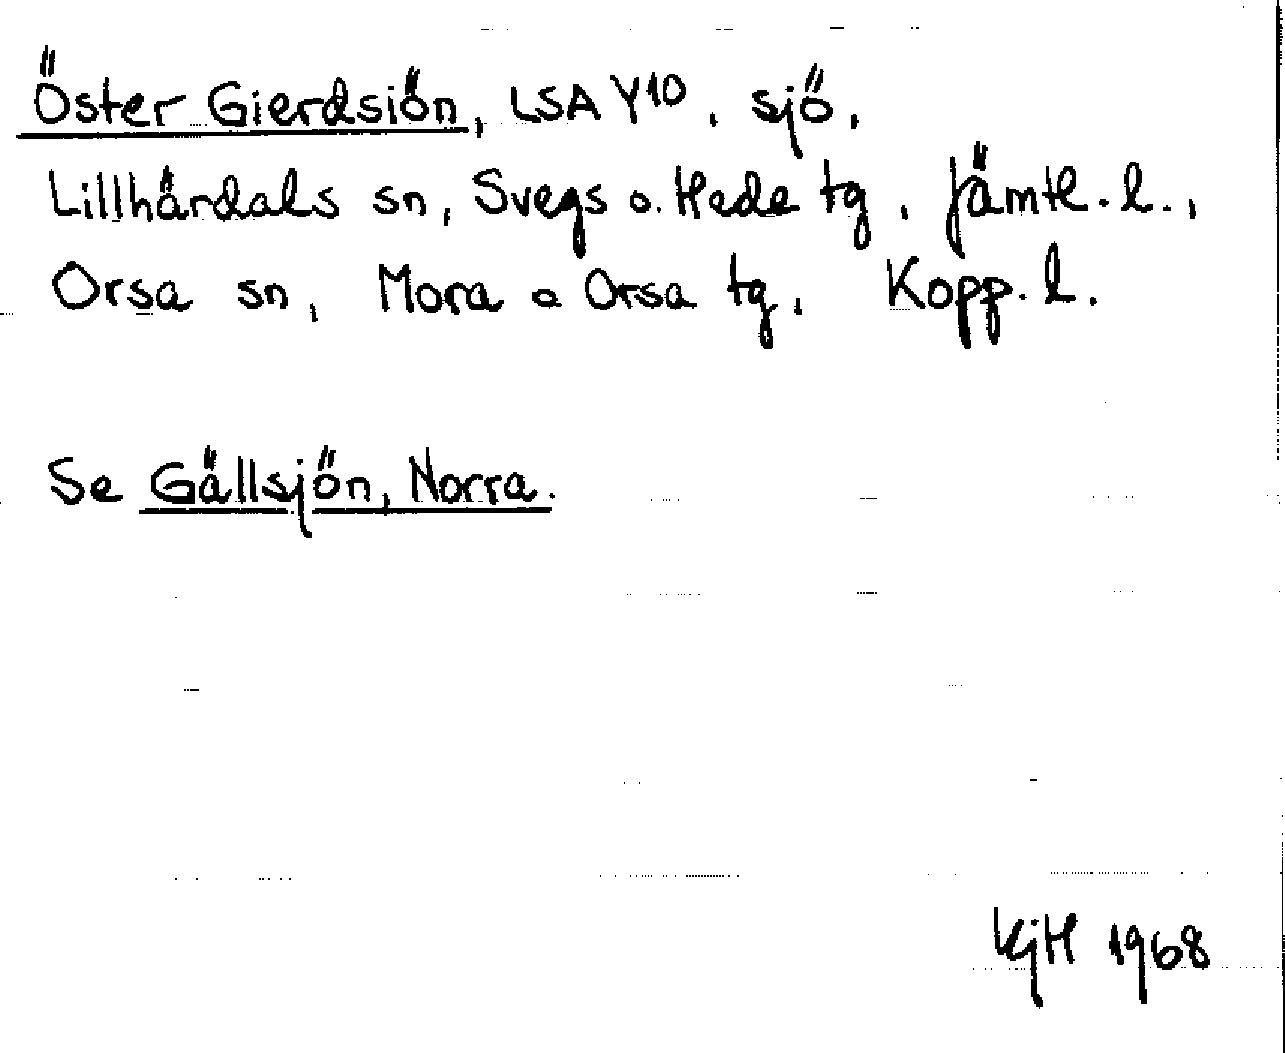 Öster Gierdsiön, LSA Y10, sjö,
Lillhårdals sn, Svegs o. Hede tg, Jämtl. l.,
Orsa sn, Mora o Orsa tg, Kopp. l.
Se Gällsjön, Norra.
KjH 1968